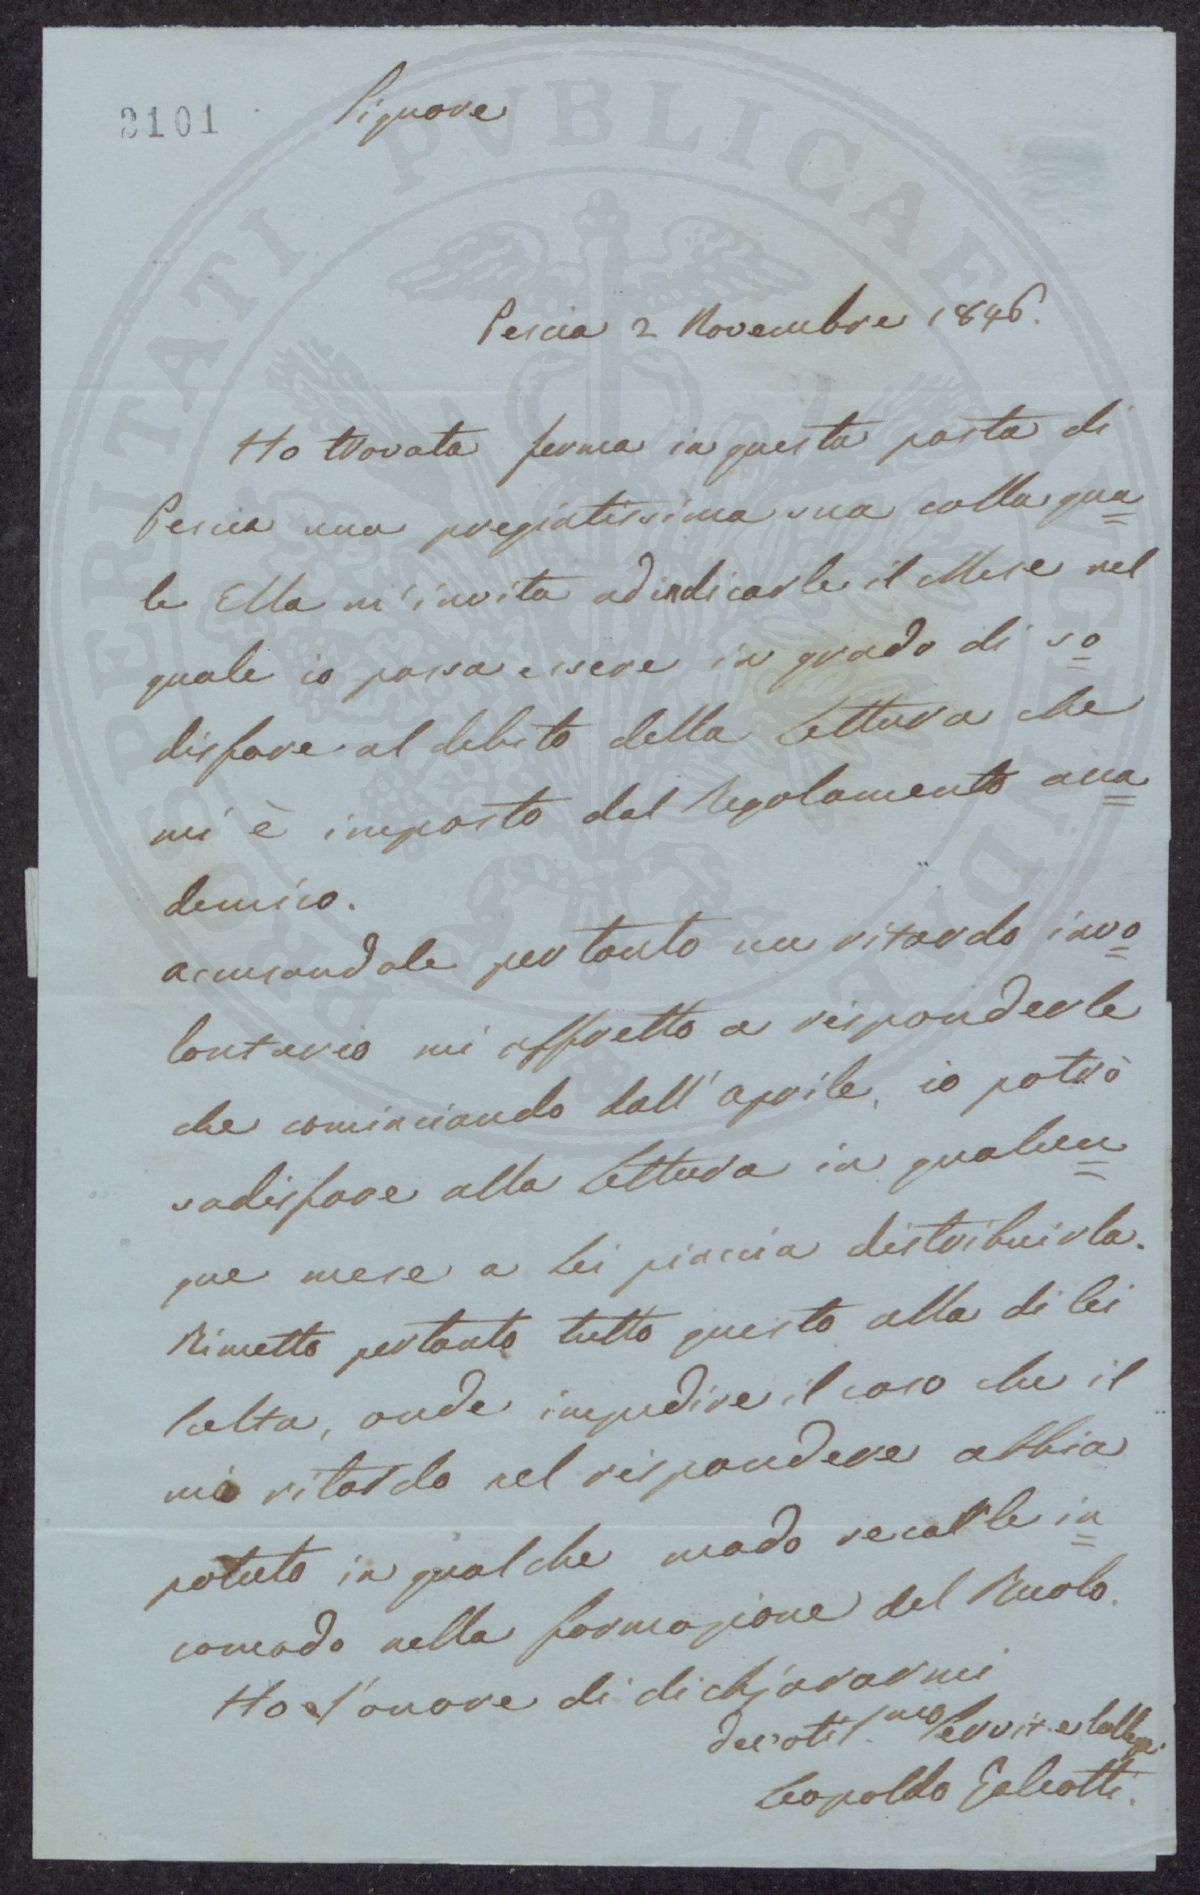 2101
Signore
Pescia 2 Novembre 1846.
Ho trovata ferma in questa posta di
Pescia una pregiatissima sua colla qua=
le Ella m'invita ad indicarle il Mese nel
quale io possa essere in grado di so=
disfare al debito della Lettura che
mi è imposto dal Regolamento acca=
demico.
acusandole pertanto un ritardo invo=
lontario mi affretto a risponderle
che cominciando dall'aprile, io potrò
sadisfare alla Lettura in qualun=
que mese a Lei piaccia distribuirla.
Rimetto pertanto tutto questo alla di lei
scelta, onde impedire il caso che il
mio ritardo nel rispondere abbia
potuto in qualche modo recarle in=
comodo nella formazione del Ruolo.
Ho l'onore di dichiararmi
devotiss.mo Servit. e Collega.
Leopoldo Galeotti.
PROSPERITATI PVBLICAE AVGENDAE